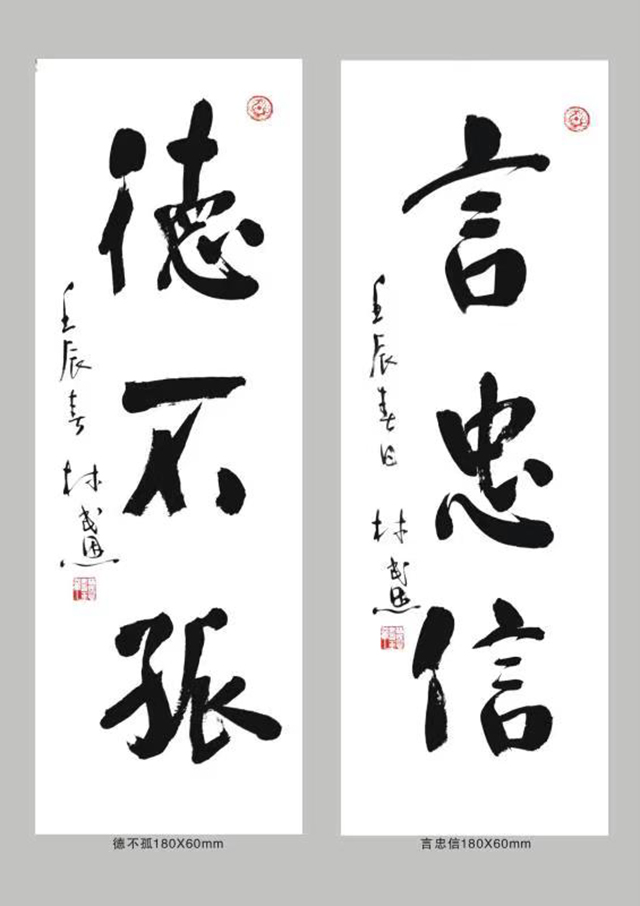 德不孤
壬辰春 林
言忠信
壬辰春日 林
德不孤180X60mm
言忠信180X60mm